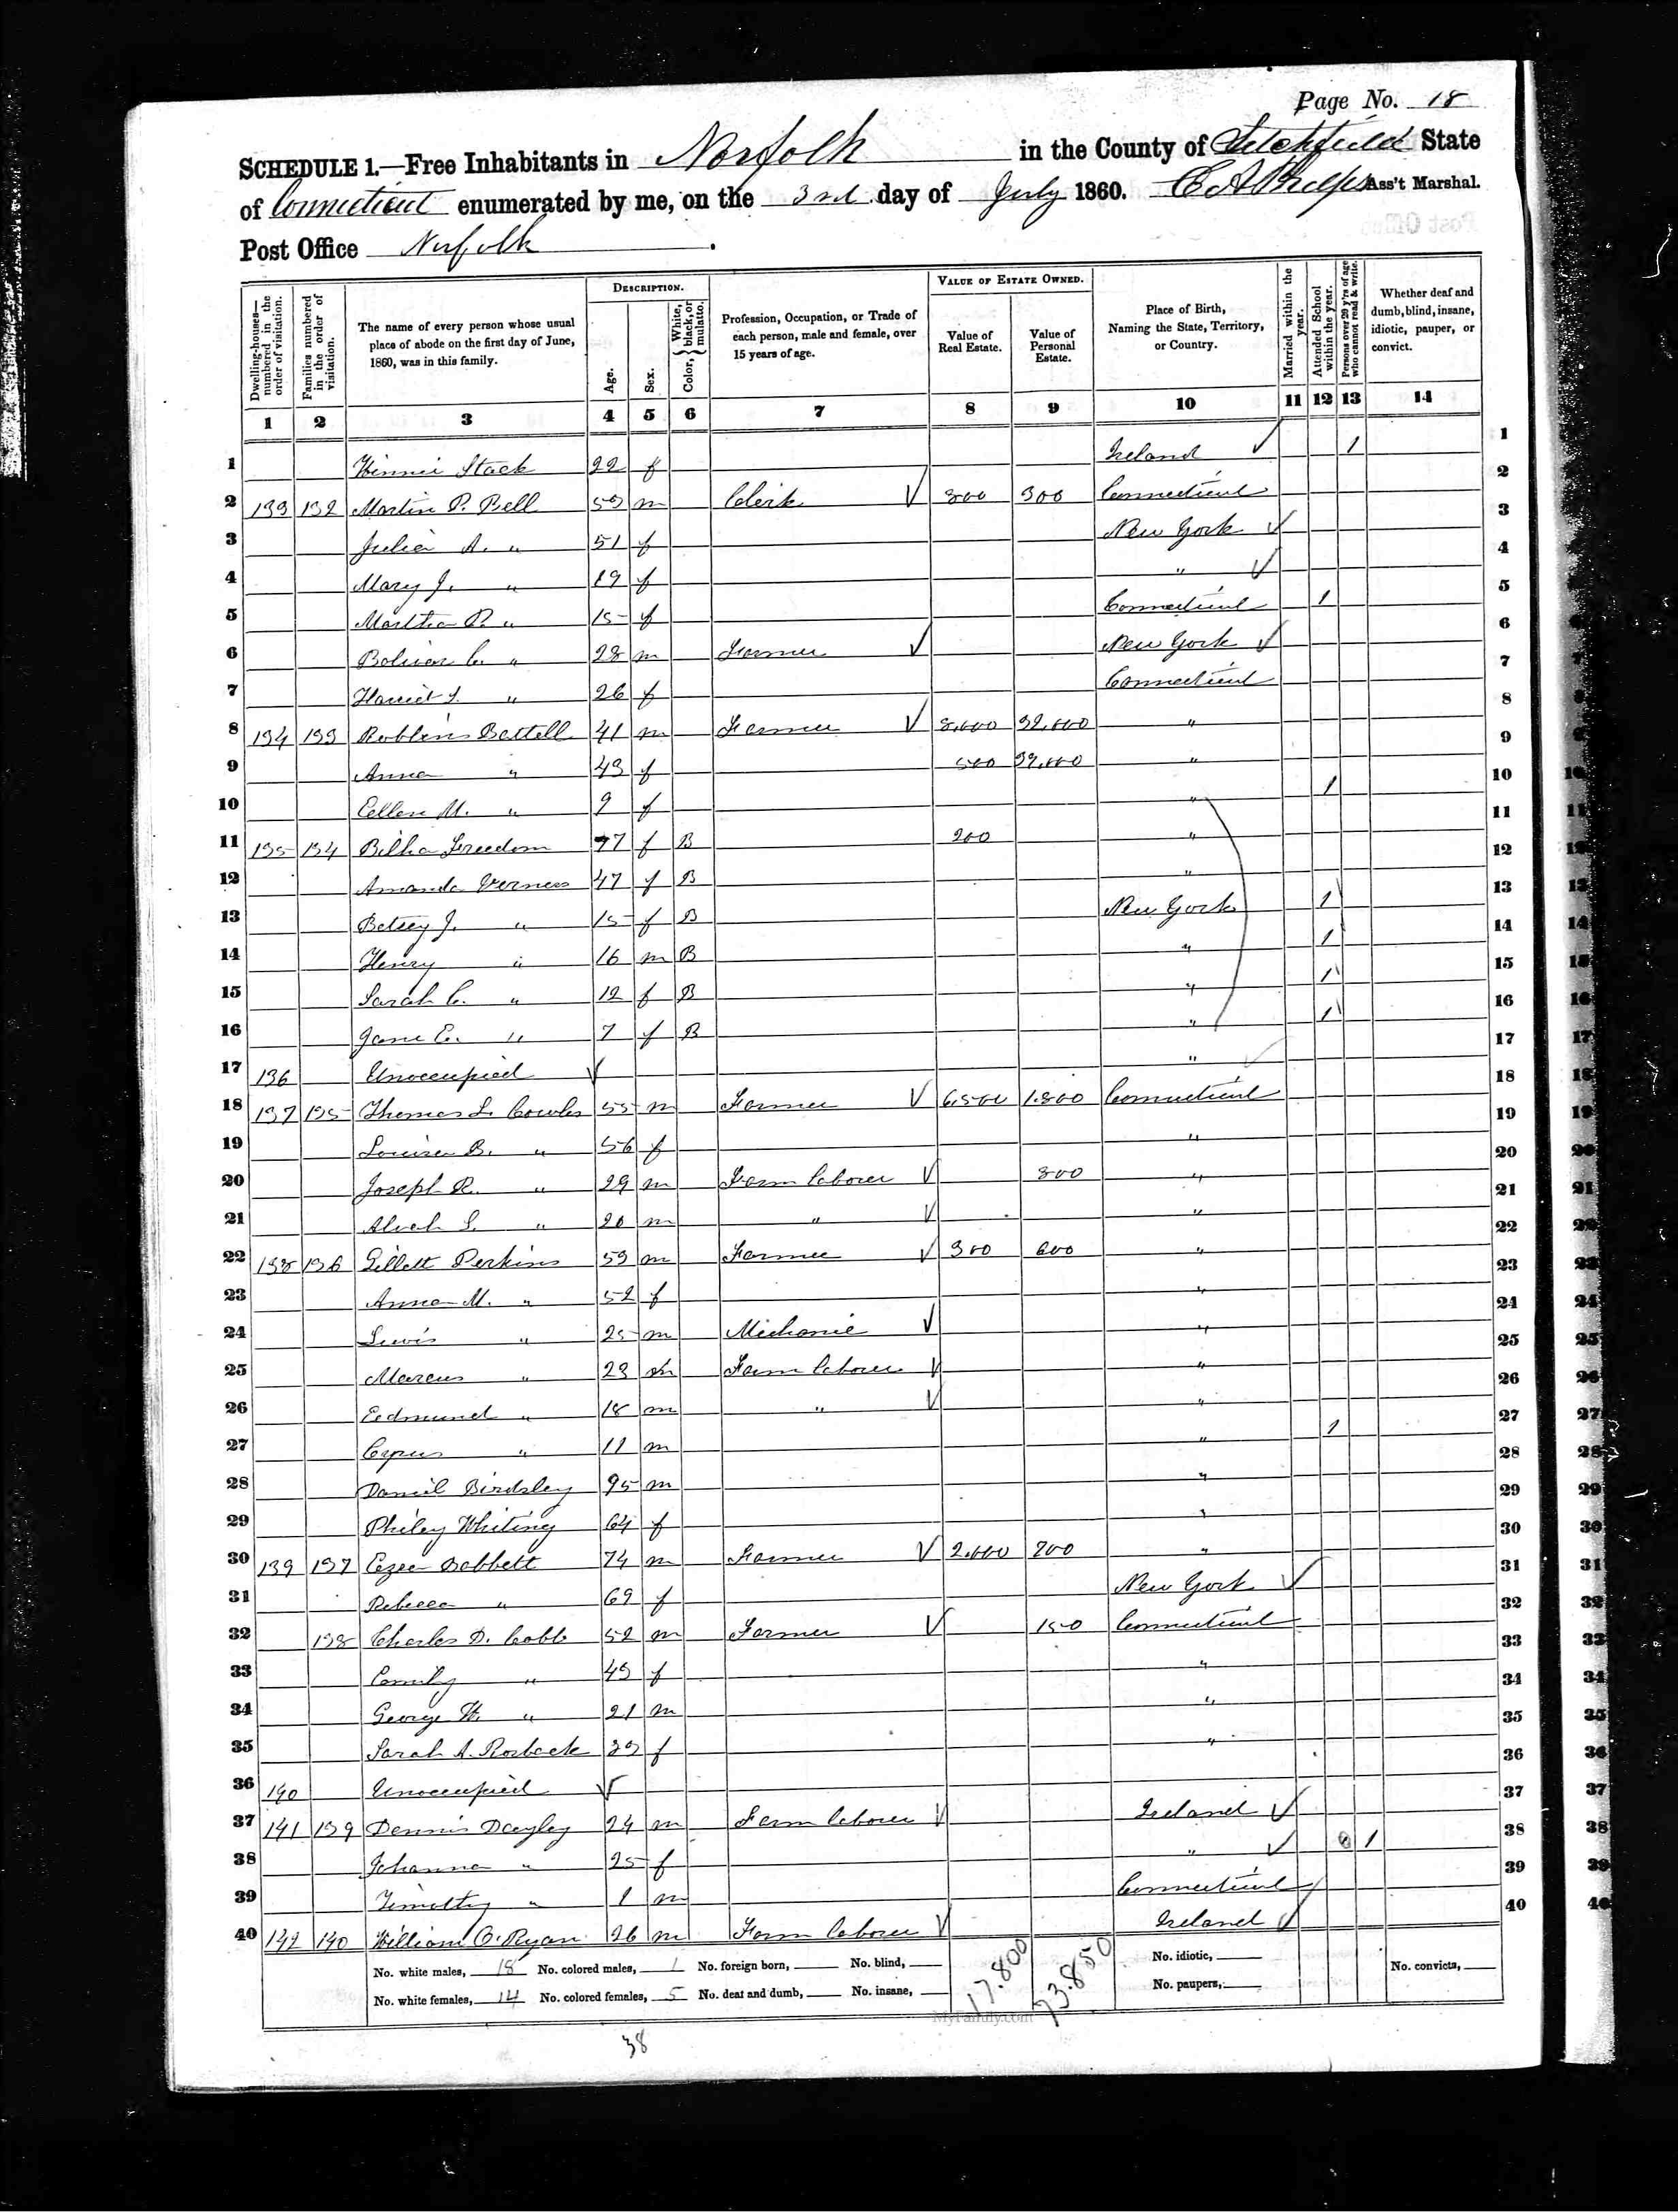 Page No. 18
SCHEDULE 1.—Free Inhabitants in Norfolk in the County of Litchfield State
of Connecticut enumerated by me, on the 3rd day of July 1860. C A Phelps Ass't Marshal.
Post Office Norfolk.
Dwelling-houses—numbered in the order of visitation.
Families numbered in the order of visitation.
The name of every person whose usual place of abode on the first day of June, 1860, was in this family.
DESCRIPTION.
Age.
Sex.
Color, { White, black, or mulatto.
Profession, Occupation, or Trade of each person, male and female, over 15 years of age.
VALUE OF ESTATE OWNED.
Value of Real Estate.
Value of Personal Estate.
Place of Birth, Naming the State, Territory, or Country.
Married within the year.
Attended School within the year.
Persons over 20 y'rs of age who cannot read & write.
Whether deaf and dumb, blind, insane, idiotic, pauper, or convict.
1 2 3 4 5 6 7 8 9 10 11 12 13 14
1 Stack 22 f Ireland ✓ 1 1
2 133 132 Martin P. Bell 53 m Clerk ✓ 300 Connecticut 2
3 Julia A. " 51 f New York ✓ 3
4 Mary J. " 19 f " ✓ 4
5 Martha P. " 15 f Connecticut 1 5
6 Bolivar C. " 28 m Farmer ✓ New York ✓ 6
7 Harriet " 26 f Connecticut 7
8 134 133 Robbins Battell 41 m Farmer ✓ 8,000 32,000 " 8
9 Anna " 43 f 500 " 9
10 Ellen M. " 9 f " 1 10
11 135 134 Bilha Freedom 77 f B 200 " 11
12 Amanda 47 f B " 12
13 Betsey J. " 15 f B New York 1 13
14 Henry " 16 m B " 1 14
15 Sarah C. " 12 f B " 1 15
16 Jane E. " 7 f B " 1 16
17 136 Unoccupied ✓ " 17
18 137 135 Thomas L. Cowles 55 m Farmer ✓ 6,500 1,800 Connecticut 18
19 Louisa B. " 56 f " 19
20 Joseph R. " 29 m Farm laborer ✓ 300 " 20
21 " 20 m " ✓ " 21
22 138 136 Gillett Perkins 59 m Farmer ✓ 300 600 " 22
23 Anna M. " 52 f " 23
24 Lewis " 25 m Mechanic ✓ " 24
25 Marcus " 23 m Farm laborer ✓ " 25
26 Edmund " 18 m " ✓ " 26
27 Cyrus " 11 m " 1 27
28 Daniel Birdsley 95 m " 28
29 Philey Whiting 64 f " 29
30 139 137 74 m Farmer ✓ 2,000 " 30
31 Rebecca " 69 f New York ✓ 31
32 138 Charles D. Cobb 52 m Farmer ✓ 150 Connecticut 32
33 Emily " 45 f " 33
34 George H. " 21 m " 34
35 Sarah A. Rosback f " 35
36 140 Unoccupied ✓ 36
37 141 139 Dennis Dayley 24 m Farm laborer ✓ Ireland ✓ 37
38 Johanna " 25 f " ✓ 1 38
39 Timothy " 1 m Connecticut 39
40 142 140 William O. Ryan 26 m Farm laborer ✓ Ireland ✓ 40
No. white males, 18 No. colored males, 1 No. foreign born, No. blind, 17.800 73.850 No. idiotic, No. convicts,
No. white females, 14 No. colored females, 5 No. deaf and dumb, No. insane, No. paupers,
MyFamily.com
38